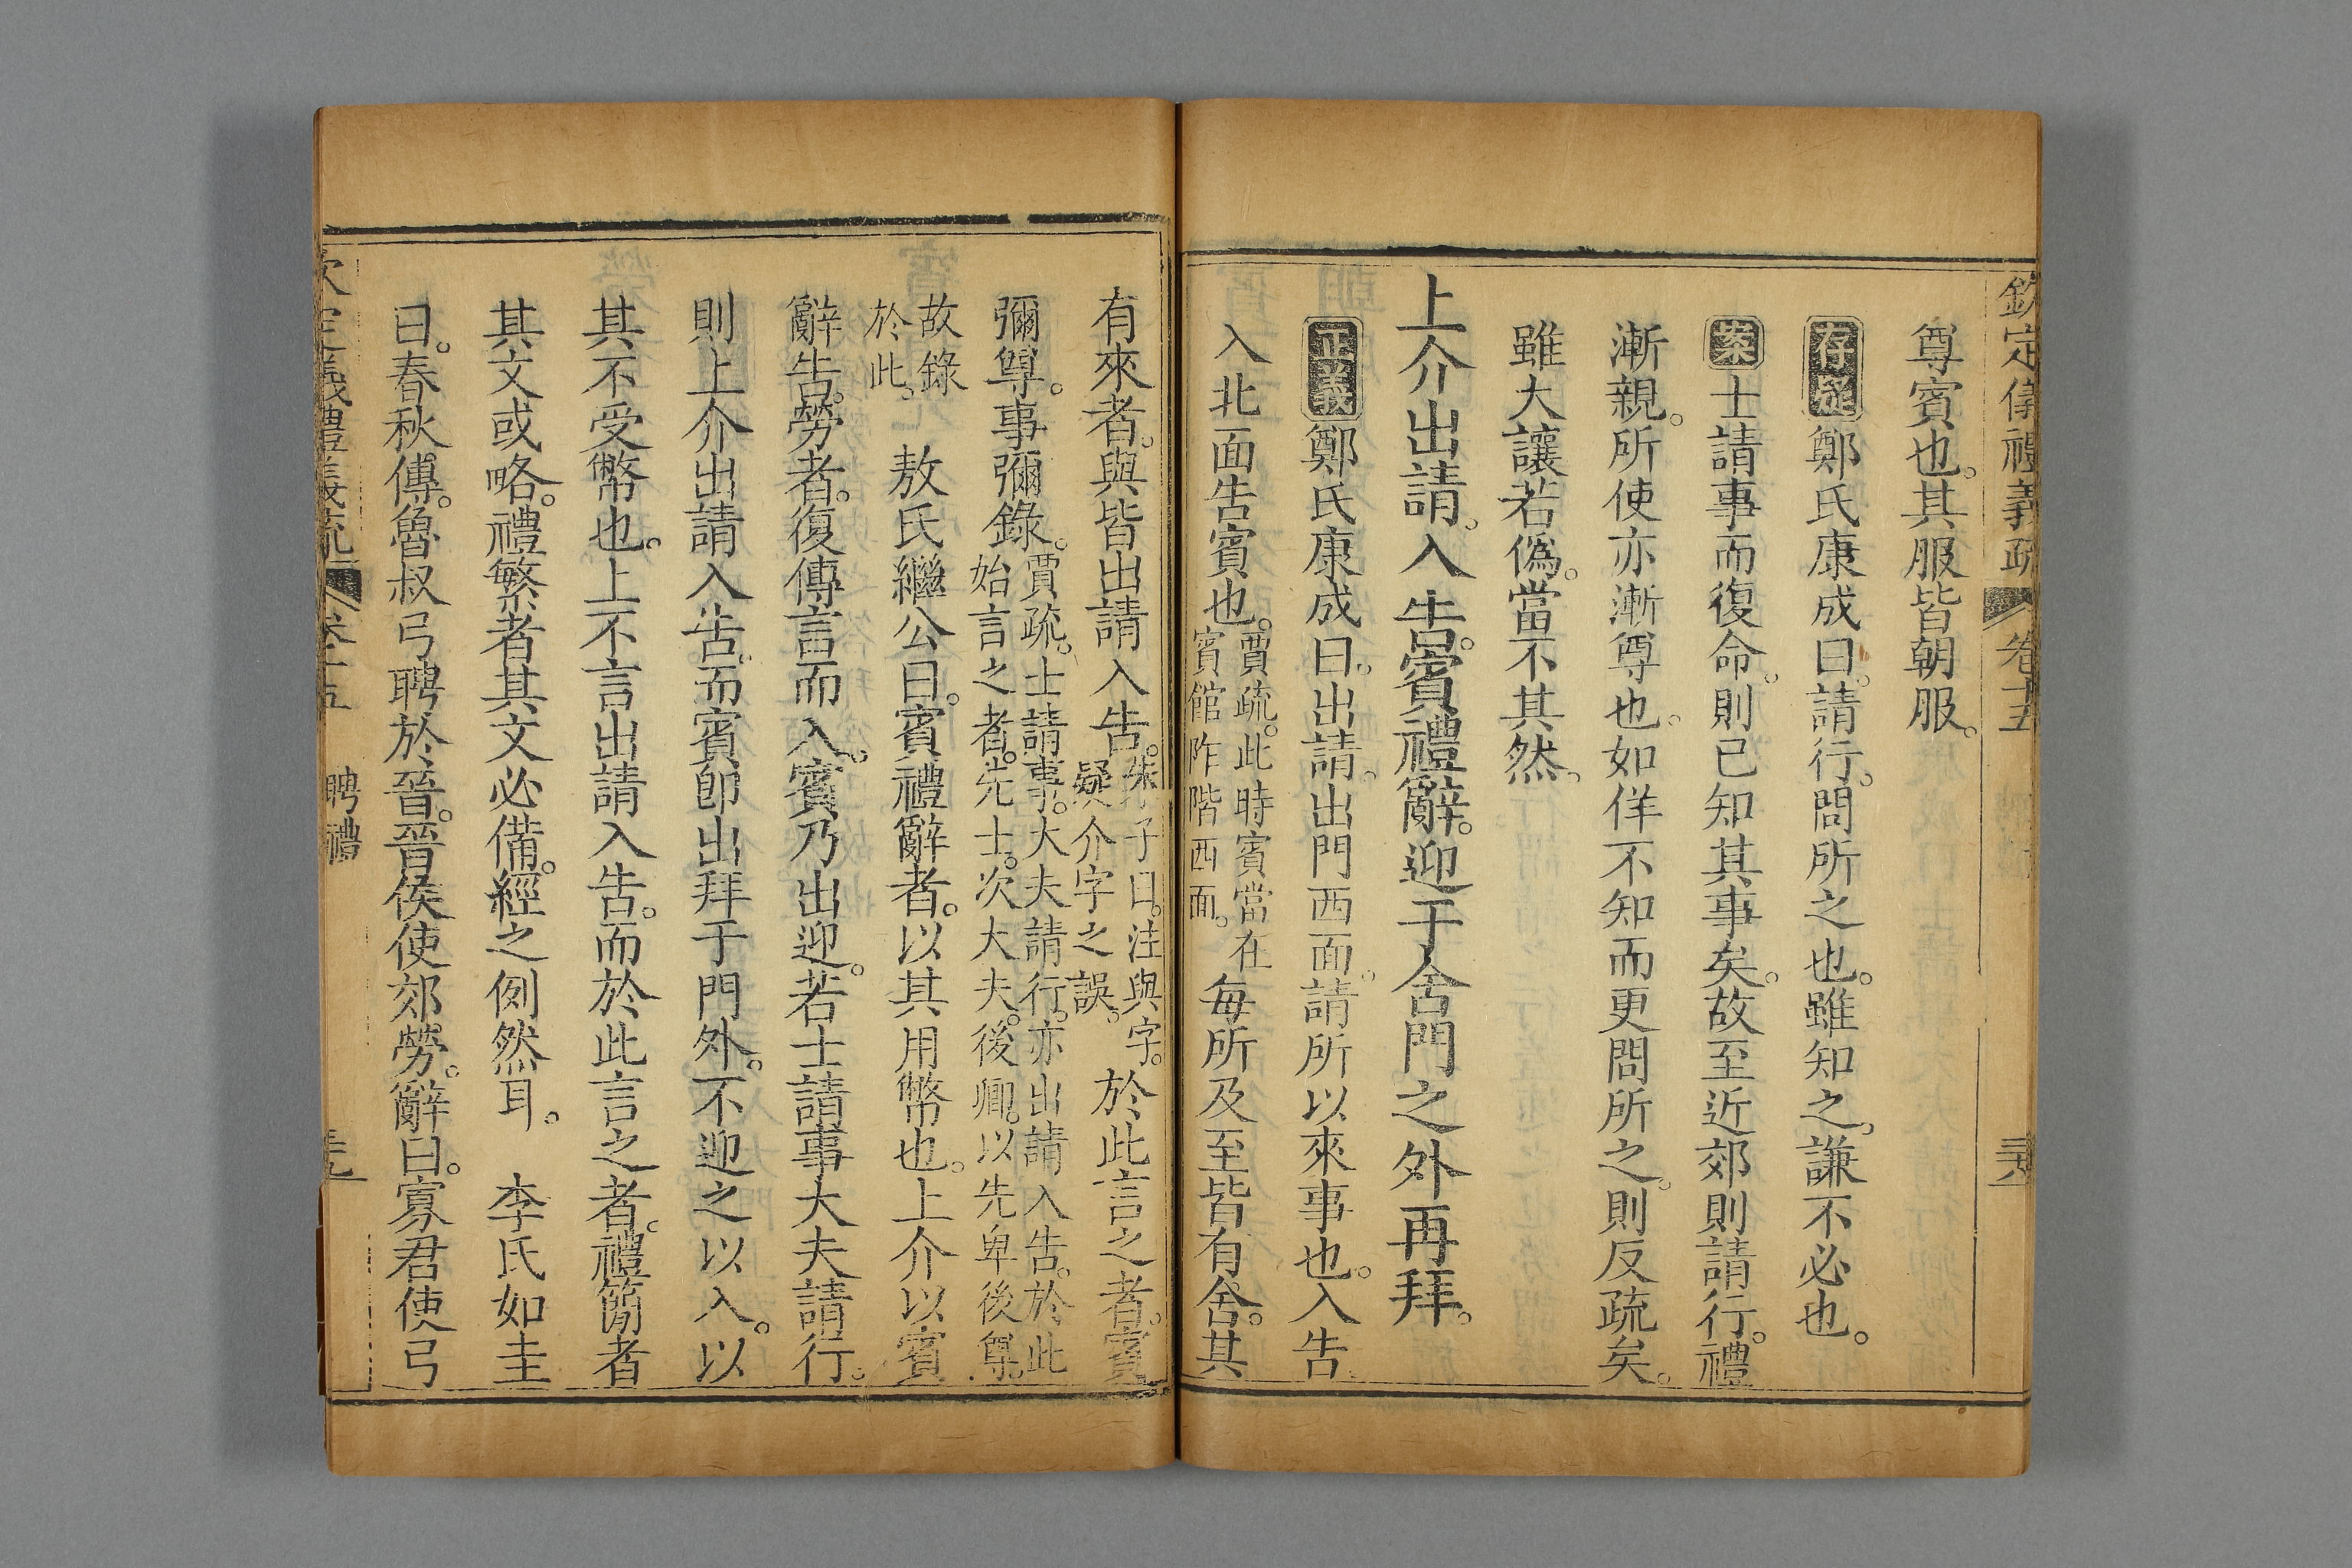 欽定儀禮義疏 卷十五
尊賓也。其服皆朝服。
存疑鄭氏康成曰。請行。問所之也。雖知之。謙不必也。
案士請事而復命。則已知其事矣。故至近郊則請行。禮
漸親。所使亦漸尊也。如佯不知而更問所之。則反疏矣。
雖大讓若僞。當不其然。
上介出請。入告。賓禮辭。迎于舍門之外再拜。
正義鄭氏康成曰。出請。出門西面。請所以來事也。入告
入北面告賓也。賈疏。此時賓當在
賓館阼階西面。每所及至皆有舍。其
有來者。與皆出請入告。朱子曰。注與字。
疑介字之誤。於此言之者。賓
彌尊。事彌錄。賈疏。士請事。大夫請行。亦出請入告。於此
始言之者。先士。次大夫。後卿。以先卑後尊。
故錄
於此。敖氏繼公曰。賓禮辭者。以其用幣也。上介以賓
辭告。勞者。復傳言而入。賓乃出迎。若士請事大夫請行。
則上介出請入告。而賓卽出拜于門外。不迎之以入。以
其不受幣也。上不言出請入告。而於此言之者。禮簡者
其文或略。禮繁者其文必備。經之例然耳。 李氏如圭
曰。春秋傳。魯叔弓聘於晉。晉侯使郊勞。辭曰。寡君使弓
聘禮